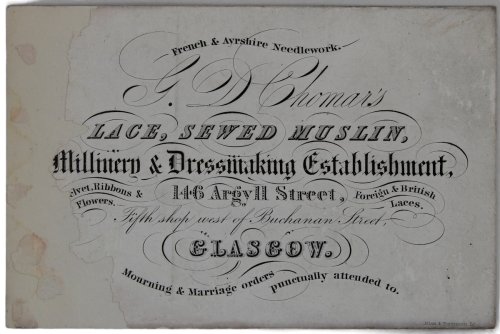 French & Ayrshire Needlework.
G. D Chomar's
LACE, SEWED MUSLIN,
Millinery & Dressmaking Establishment,
elvet, Ribbons & Flowers.
146 Argyll Street,
Foreign & British Laces.
Fifth shop west of Buchanan Street,
GLASGOW.
Mourning & Marriage orders punctually attended to.